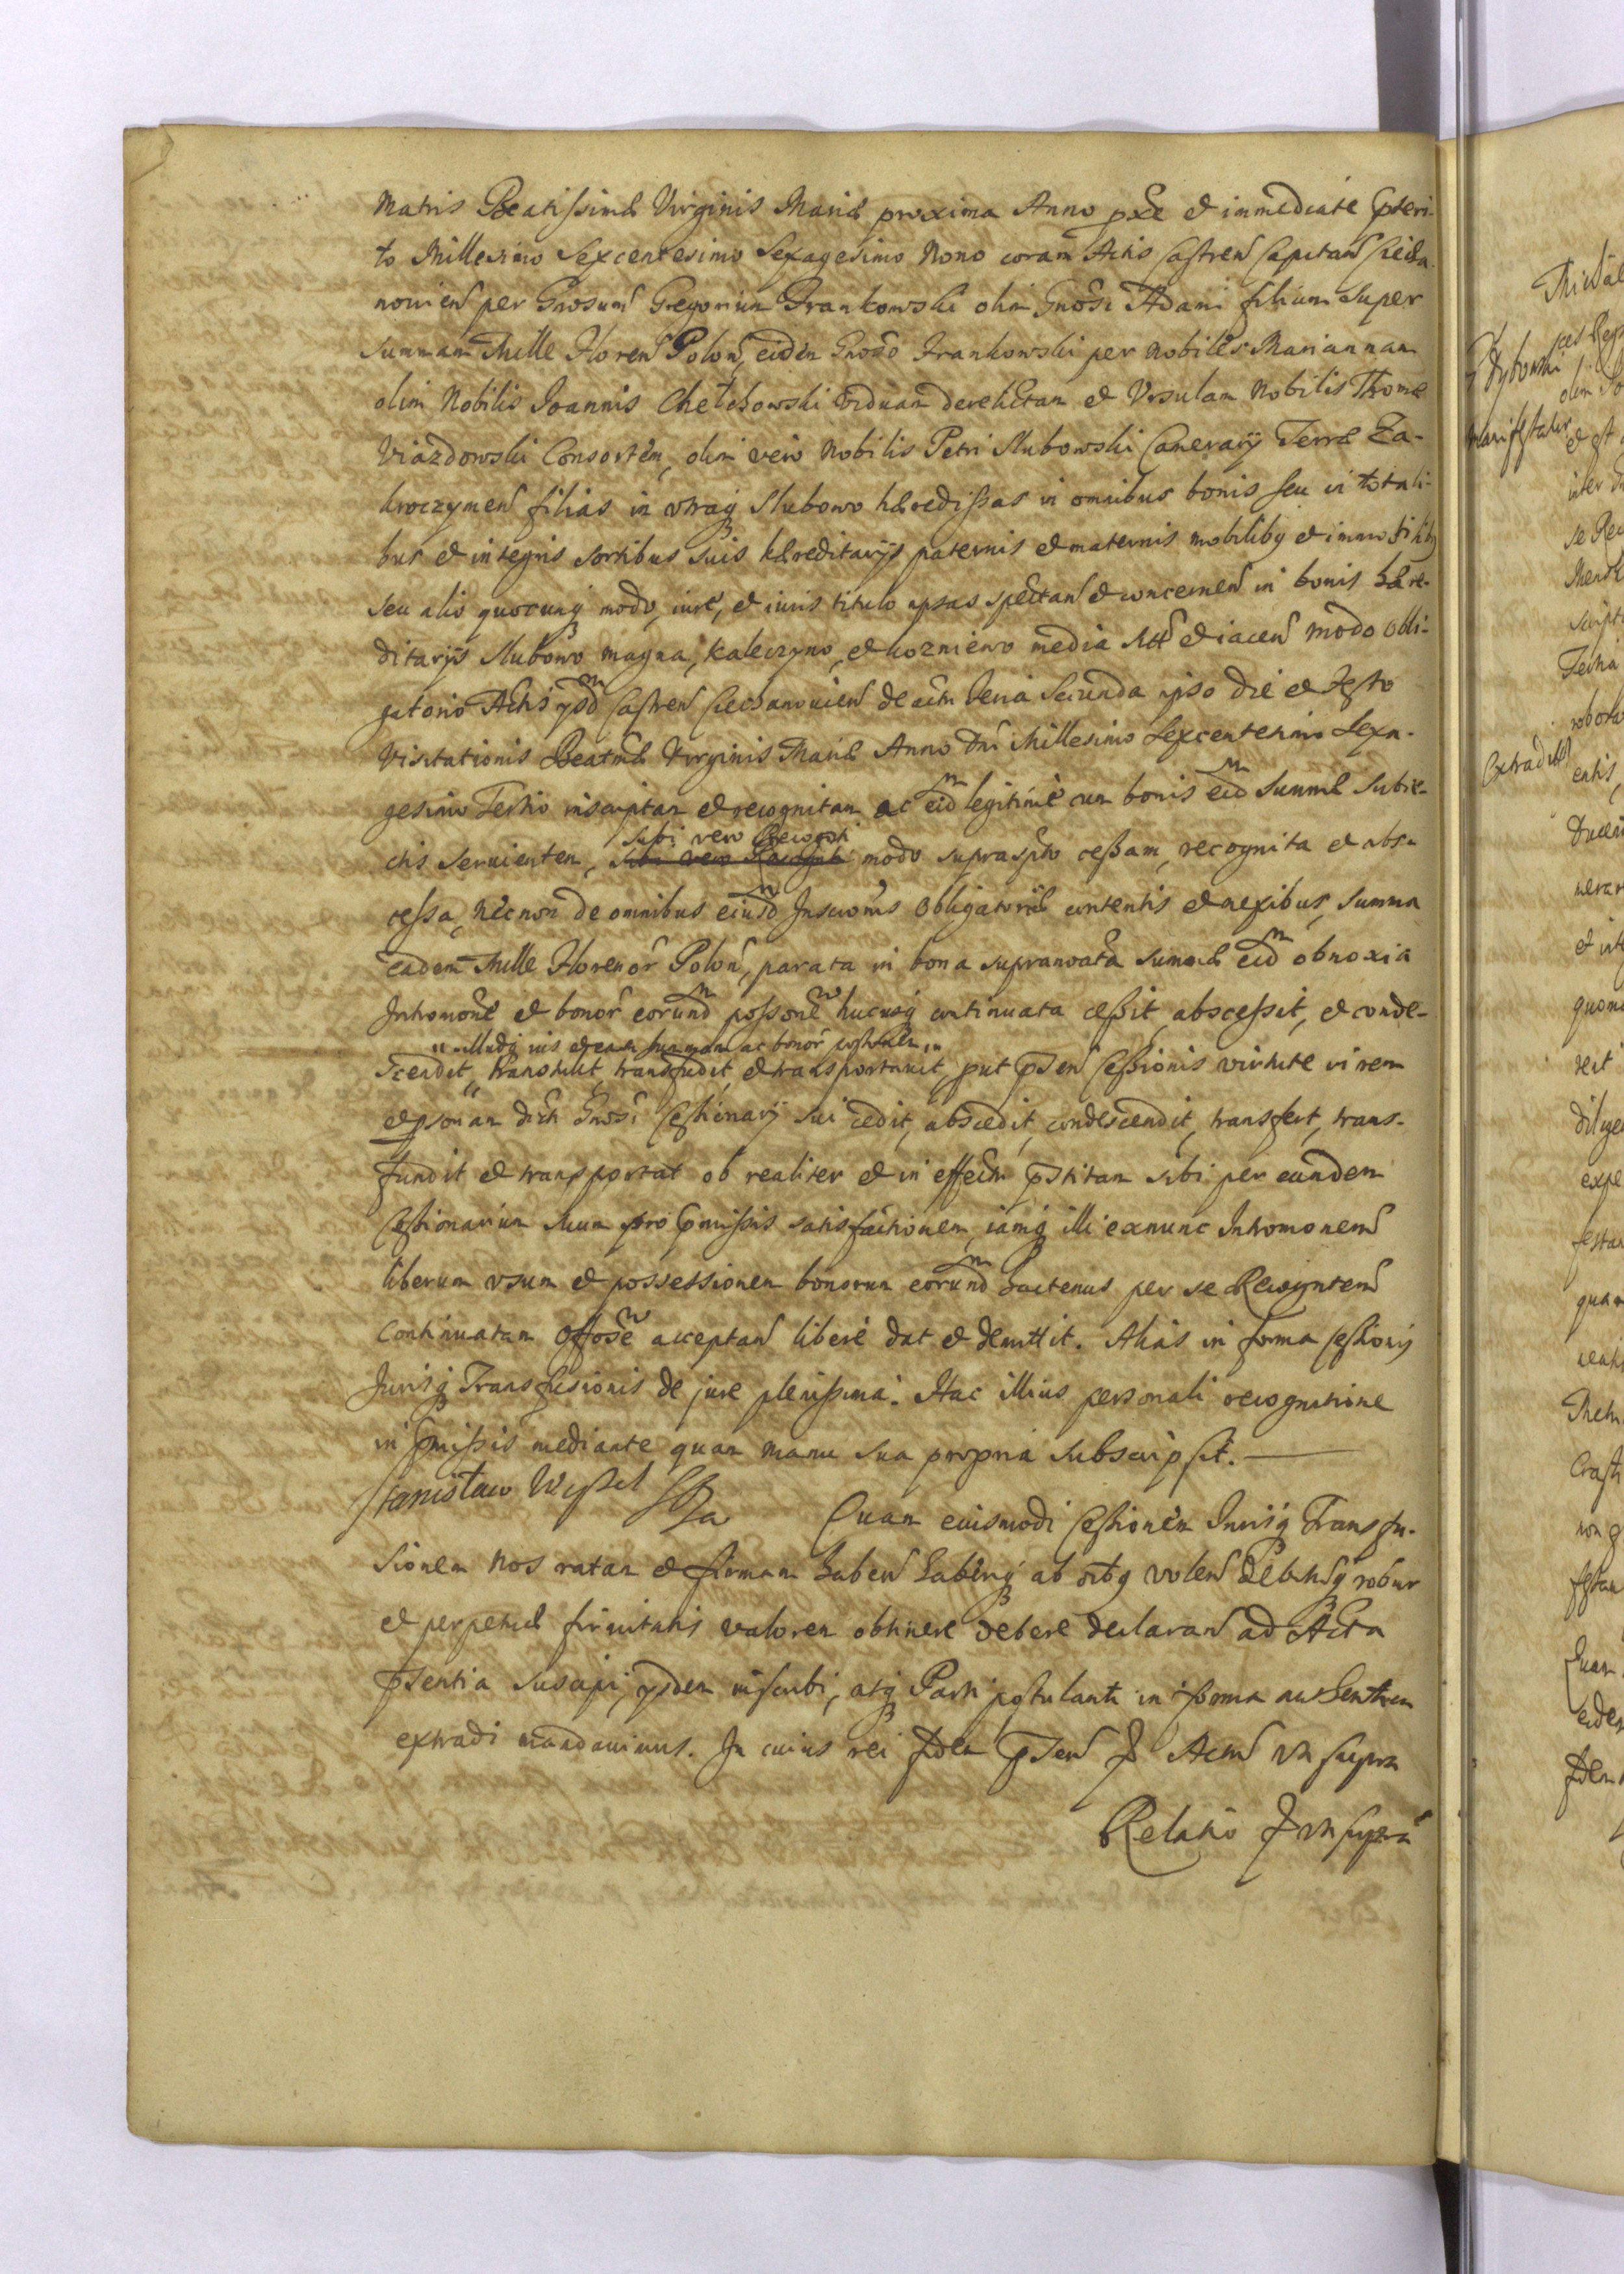 Matris Beatissimæ Virginis Mariæ proxima Anno pxe et immediate pteri-
to Millesimo Sexcentesimo Sexagesimo Nono coram Actis Castren Capitan Ciecha-
novien per Gnosum Gregorium Frankowski olim Gnosi Adami filium super
summam Mille Floren Polon, eidem Gnoso Frankowski per Nobiles Mariannam
olim Nobilis Joannis Chełchowski viduam derelictam et Vrsulam Nobilis Thomæ
Viazdowski Consortem, olim vero Nobilis Petri Slubowski Camerarij Terræ Za-
kroczymen filias in vtraq Slubowo hæredissas in omnibus bonis seu in totali-
bus et integris sortibus suis hæreditarijs paternis et maternis mobilibq et immobilibq
seu alio quocunq modo, iure, et iuris titulo ipsas spectan et concernen in bonis hære-
ditarijs Slubowo magna, Kaleczyno, et Kozniewo media sitt et iacen modo obli-
gatorio Actis ysdm Castren Ciechanovien de actu Feria Secunda ipso die et Festo
Visitationis Beatmæ Virginis Mariæ Anno Dni Millesimo Sexcentesimo Sexa-
gesimo Tertio inscriptam et recognitam ac eidm legitimè cum bonis eidm summæ subie-
ctis seruientem, sibi vero Recognti
modo suprascpto cessam, recognita et abs-
cessa, Necnon de omnibus eiusdm Inscronis Obligatoriæ contentis et nexibus, summa
eadem Mille Florenor Polon, parata in bona supranoata summæ eidm obnoxia
Intromone et bonor eorundm possone hucusq continuata cessit, abscessit, et conde-
illudq ius et eam summam ac bonor
scendit, transtulit, transfudit, et transportauit, put psen Cessionis virtute in rem
et psonam dicti Gnosi Cessionarij sui cedit, abscedit, condescendit, transfert, trans-
fundit et transportat ob realiter et in effectu pstitam sibi per eundem
Cessionarium suum pro pmissis satisfactionem, iamq illi exnunc Intromonem
liberum vsum et possessionem bonorum eorundm hactenus per se Recogntem
continuatam Offose acceptan liberè dat et demittit. Alias in forma Cessionis
Jurisq Transfusionis de jure plenissima. Hac illius personali recognitione
in pmissis mediante quam manu sua propria subscripsit.
Stanisław Wessel SZa
Quam eiusmodi Cessionem Jurisq Transfu-
sionem Nos ratam et firmam haben haberiq ab oibq volen debitusq robur
et perpetuæ firmitatis valorem obtinere debere declaran ad Acta
psentia suscipi, ysdem inscribi, atq Parti postulanti in forma authentica
extradi mandauimus. In cuius rei fidem psen p Actu vt supra
Relatio p vt supra
Manifestatur